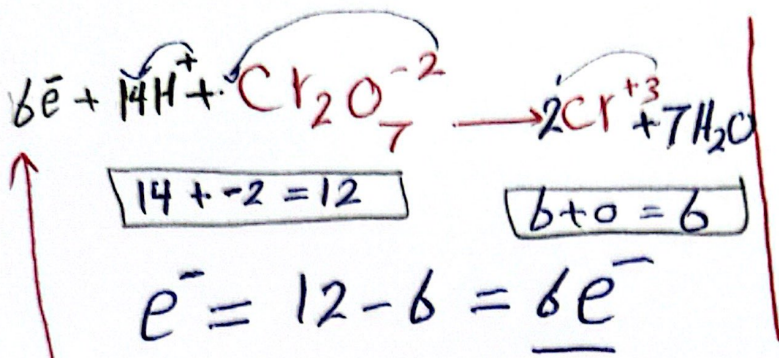 6e⁻ + 14H⁺ + Cr₂O₇⁻² → 2Cr⁺³ + 7H₂O
14 + -2 = 12
6 + 0 = 6
e⁻ = 12 - 6 = 6e⁻